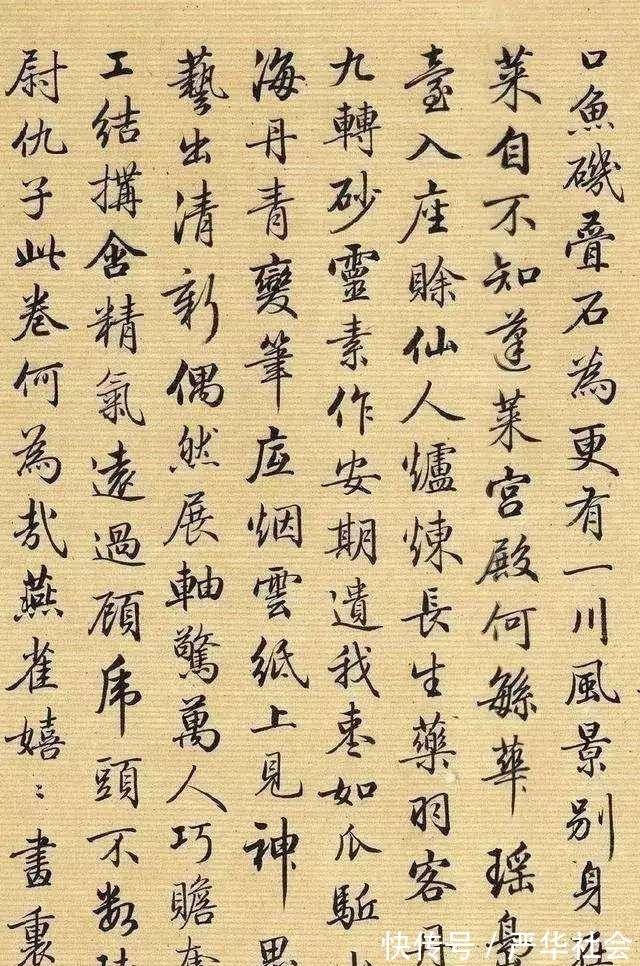 口魚磯疊石為更有一川風景別身在
菜自不知蓬萊宮殿何繇華瑶島
臺入座賒仙人爐煉長生藥羽客
九轉砂靈素作安期遺我棗如瓜駈
海丹青變筆底烟雲紙上見神思
藝出清新偶然展軸驚萬人巧贍
工結搆含精氣遠過顧虎頭不數
尉仇子此卷何為哉燕雀嬉〻畫裏
快传号/严华社会